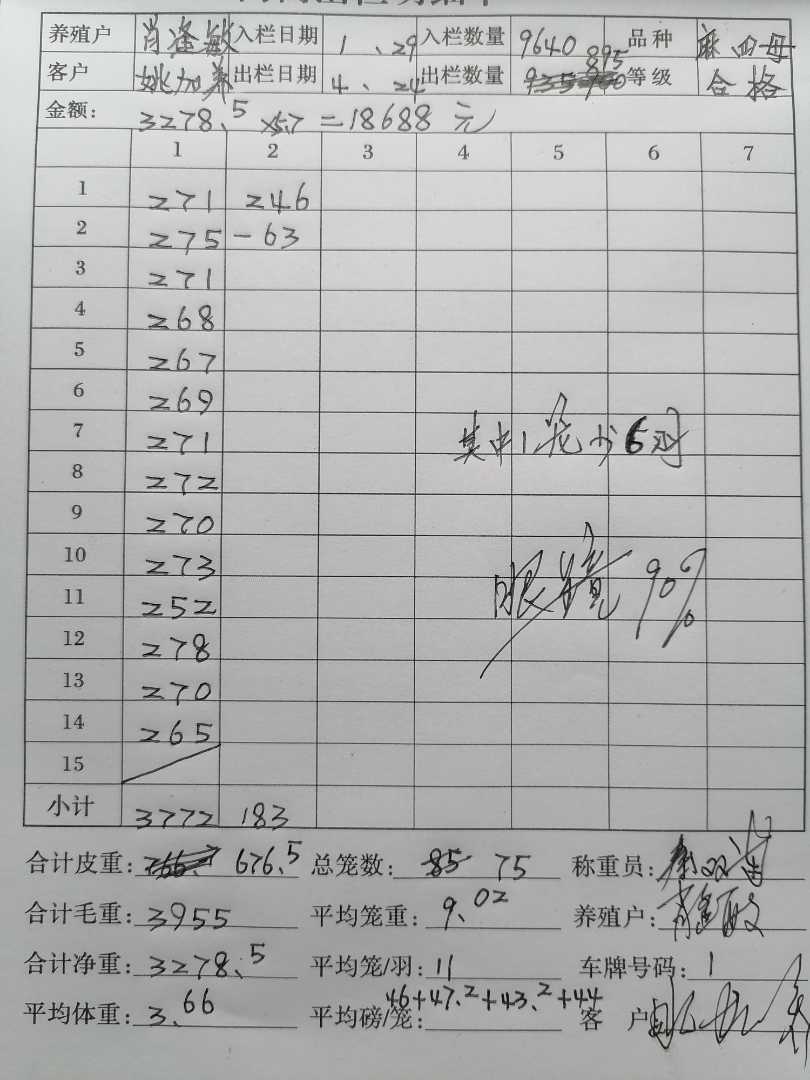 养殖户 肖逢敏 入栏日期 1、29 入栏数量 9640 品种 麻四母
客户 姚加 出栏日期 4、24 出栏数量 895 等级 合格
金额: 3278.5 ×5.7 =18688 元
1 2 3 4 5 6 7
1 271 246
2 275 -63
3 271
4 268
5 267
6 269
7 271 其中1笼少6羽
8 272
9 270
10 273
11 252 眼镜90%
12 278
13 270
14 265
15
小计 3772 183
合计皮重: 676.5 总笼数: 75 称重员:
合计毛重: 3955 平均笼重: 9.02 养殖户:
合计净重: 3278.5 平均笼/羽: 11 车牌号码: 1
平均体重: 3.66 平均磅/笼: 46+47.2+43.2+44 客户